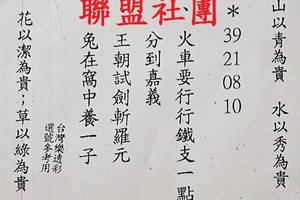 聯盟社團
山以青為貴　水以秀為貴
＊39 21 08 10
火車要行行鐵支一點
分到嘉義
王朝試劍斬羅元
兔在窩中養一子
台灣樂透彩
選號參考用
花以潔為貴；草以綠為貴